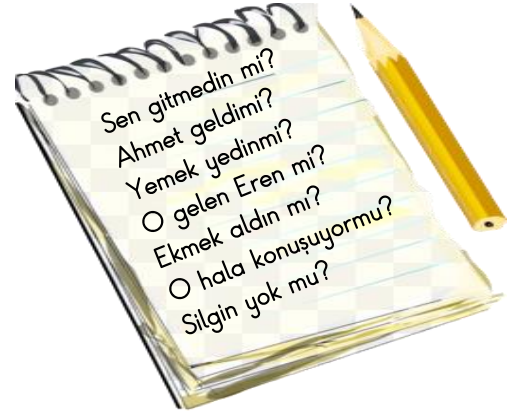 Sen gitmedin mi?
Ahmet geldimi?
Yemek yedinmi?
O gelen Eren mi?
Ekmek aldın mı?
O hala konuşuyormu?
Silgin yok mu?